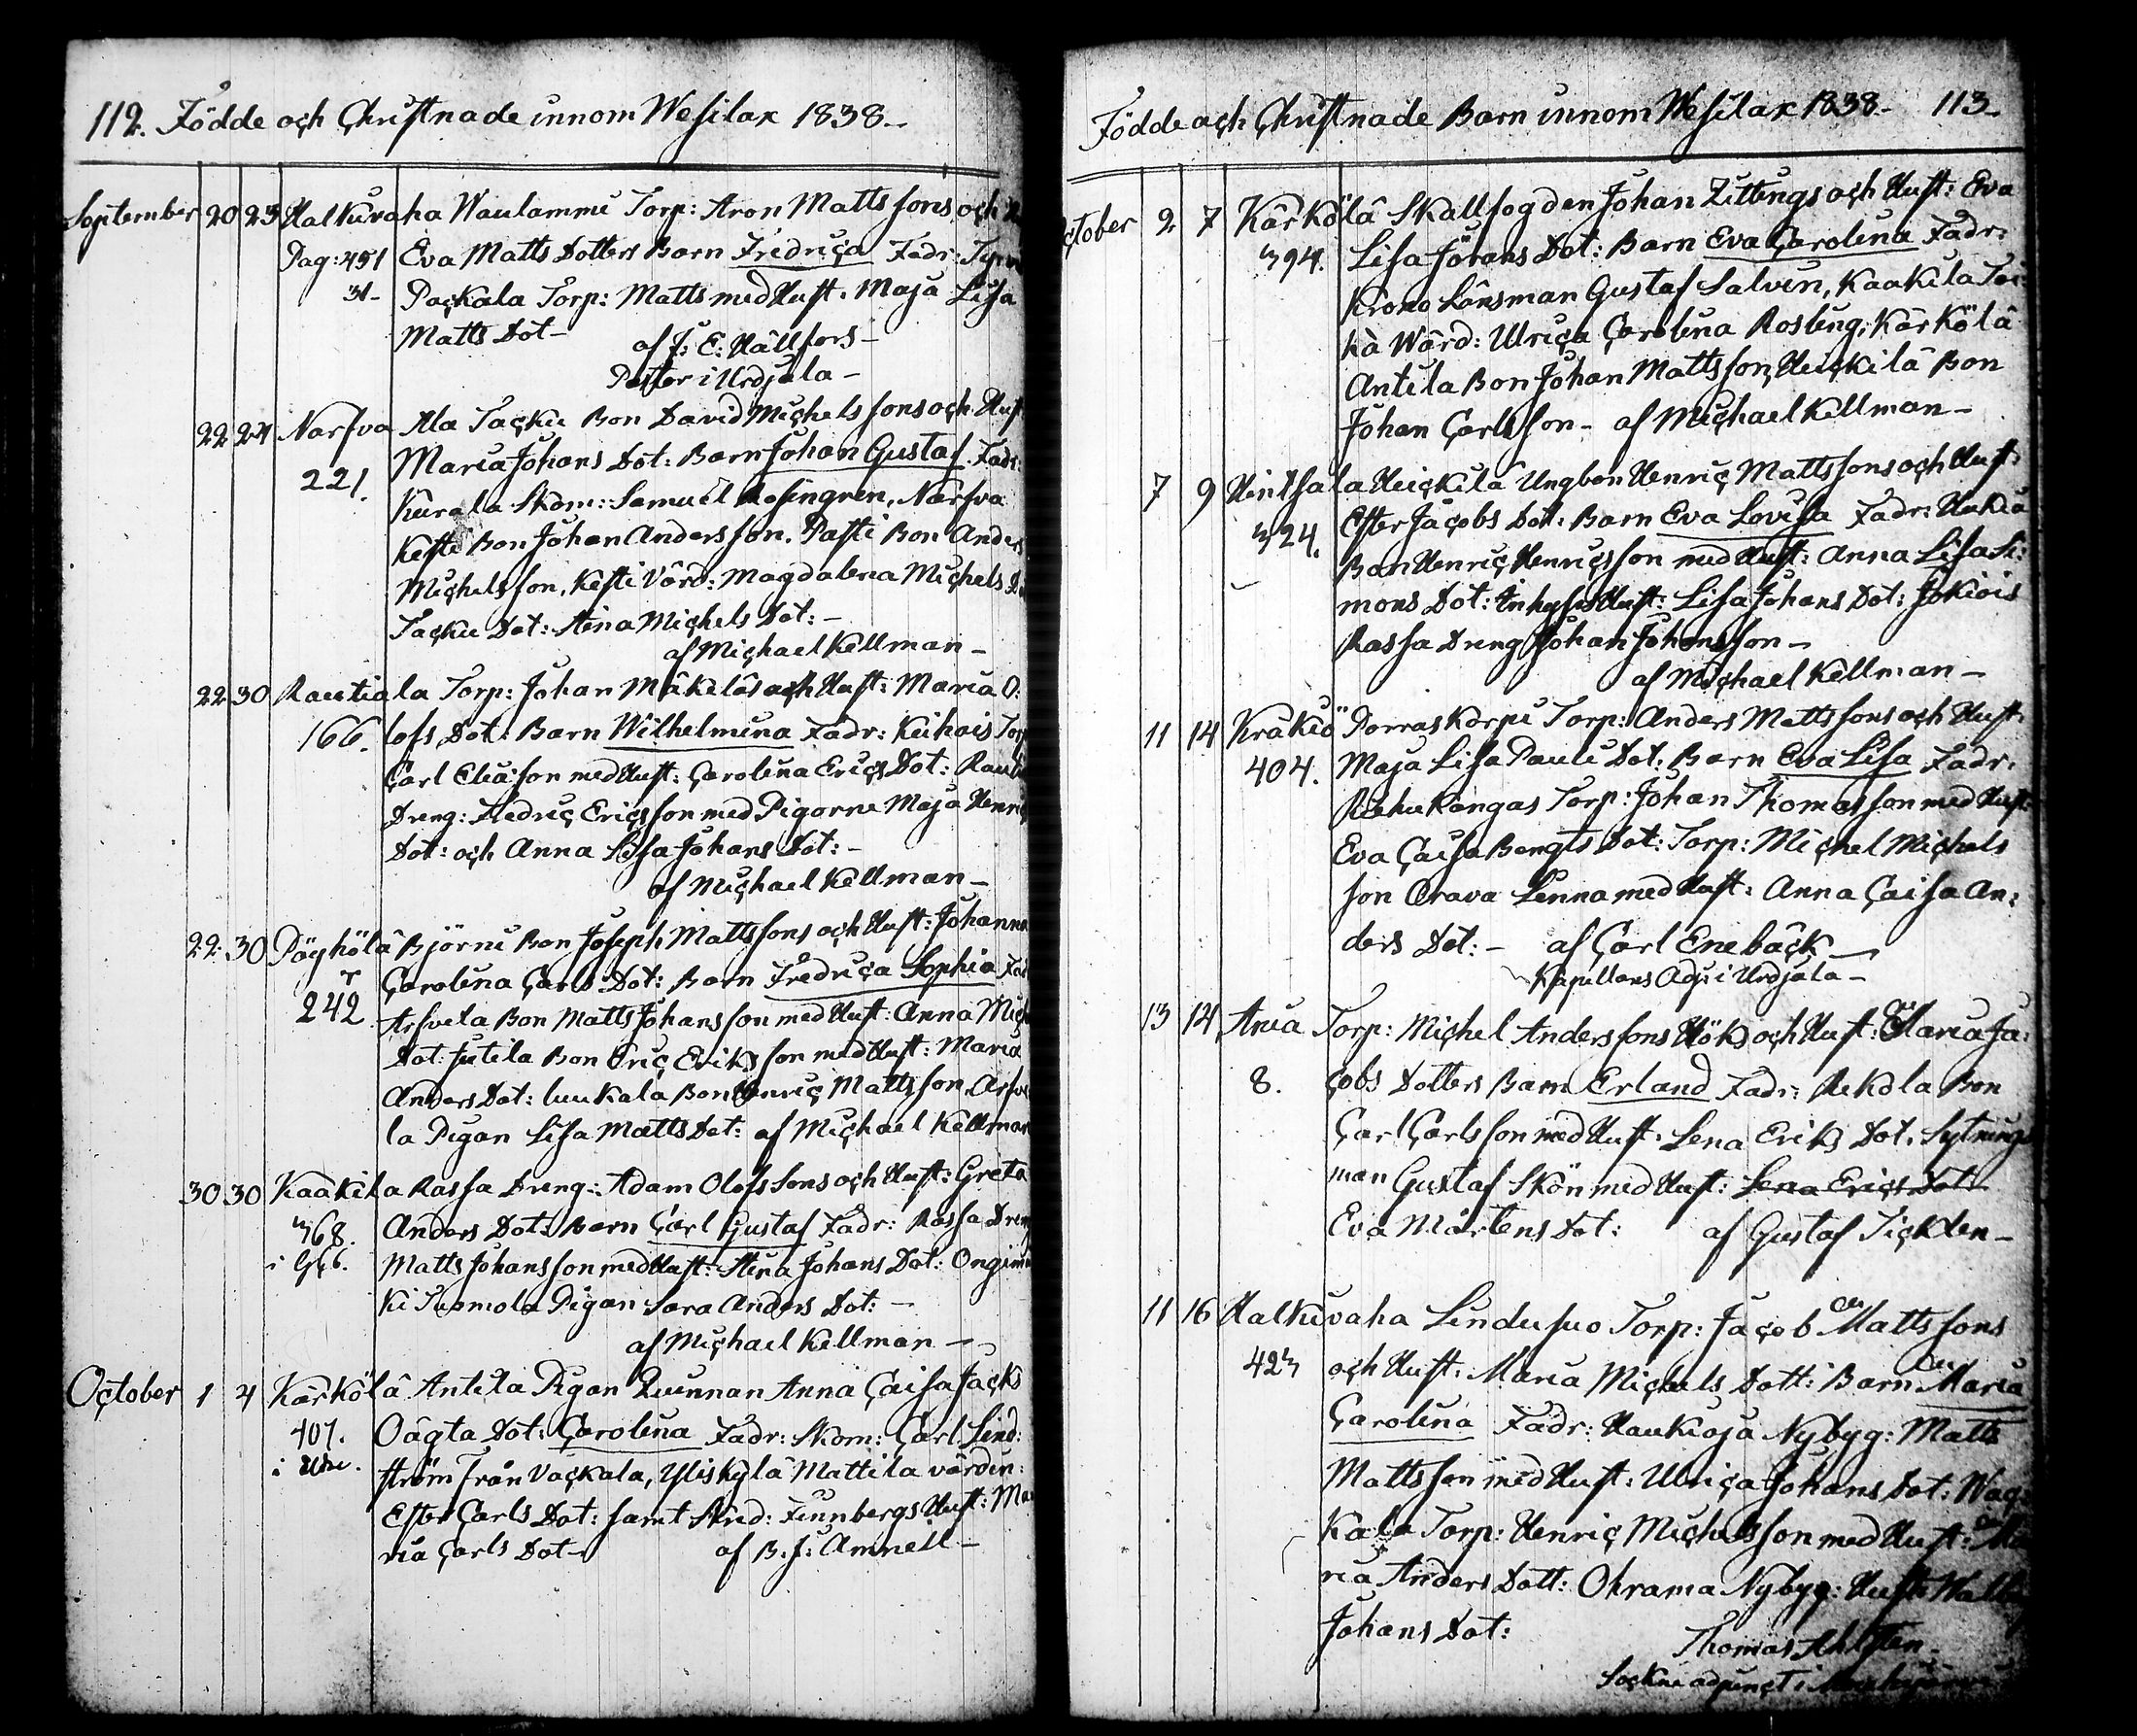 112. Födde och Christnade innom Wesilax 1838.
September 20 23 Halkivaha Waulammi Torp: Aron Mattssons och
Pag: 451 Eva Matts Dotters Barn Fredrica Fadr:
31- Packala Torp: Matts med Hust: Maja Lisa
Matts Dot- af J: E: Hällfors-
Pastor i Urdjala-
22 24 Narfva Ala Tacku Bon David Michelssons och Hust
221. Maria Johans Dot: Barn Johan Gustaf. Fadr:
Kurala Skom: Samuel Rosengren, Närfva
Kesti Bon Johan Andersson. Pasti Bon Anders
Michelsson, Kesti Värd: Magdalena Michels
Tacku Dot: Stina Michels Dot:-
af Michael Kellman-
22 30 Rautiala Torp: Johan Mäkiläs och Hust: Maria O:
166. lofs Dot: Barn Wilhelmina Fadr: Keihois Torp
Carl Eliasson med Hust: Carolina Erics Dot:
Dreng: Fredric Ericsson med Pigorne Maja Henrics
Dot: och Anna Lisa Johans Dot:-
af Michael Kellman-
22 30 Pöyhölä Björni Bon Joseph Mattssons och Hust: Johanna
242 Carolina Carls Dot: Barn Fredrica Sophia Fad
Arfvela Bon Matts Johansson med Hust: Anna Mich
Dot: Jutila Bon Eric Eriksson med Hust: Maria
Anders Dot: luukala Bon Henric Mattsson, Arfve
la Pigan Lisa Matts Dot: af Michael Kellman
30 30 Kaakila Rassa Dreng: Adam Olofssons och Hust: Greta
368. Anders Dot: Barn Carl Gustaf Fadr: Rassa Dreng
Matts Johansson med Hust: Stina Johans Dot: Ongim
ki Tuomola Pigan Sara Anders Dot:-
af Michael Kellman-
October 1 4 Kärkölä Antila Pigan Quinnan Anna Caisa Jacks
407. Dot: Carolina Fadr: Skom: Carl Lind:
ström från Vackala, Yliskylä Mattila värdin:
Ester Carls Dot: samt Skrid: Finnbergs Hust: Ma
ria Carls Dot- af B. J: Amnell-
Födde och Christnade Barn innom Wesilax 1838- 113-
October 2 7 Kärkölä Skallfogden Johan Zittings och Hust: Eva
394. Lisa Jörans Dot: Barn Eva Carolina Fadr:
Krono Länsman Gustaf Salvin, Kaakila
kä Wärd: Ulrica Carolina Rosling, Kärkölä
Antila Bon Johan Mattsson, Heickilä Bon
Johan Carlsson- af Michael Kellman-
7 9 Hinssala Heickilä Ungbon Henric Mattssons och Hust:
324. Ester Jacobs Dot: Barn Eva Lovisa Fadr:
Bon Henric Henricsson med Hust: Anna Lisa Si:
mons Dot: Inhyses Hust: Lisa Johans Dot: Jokiois
Rassa Dreng Johan Johansson-
af Michael Kellman-
11 14 Kräkiö Porraskorpi Torp: Anders Mattssons och Hust:
404. Maja Lisa Pauli Dot: Barn Eva Lisa Fadr.
Torp: Johan Thomasson med Hust:
Eva Caisa Bengts Dot: Torp: Michel Michels
son Orava Linna med Hust: Anna Caisa An:
ders Dot:- af Carl Enebäck
Kapellans Adj: i Urdjala-
13 14 Ania Torp: Michel Anderssons Hök och Hust: Maria Ja:
8. cobs Dotters Barn Erland Fadr: Rekola Bon
Carl Carlsson med Hust. Lena Eriks Dot. Sytnings
man Gustaf Skön med Hust: Lena Erics Dot:
Eva Mårtens Dot: af Gustaf Ticklén-
11 16 Halkivaha Lindusuo Torp: Jacob Mattssons
423 och Hust. Maria Michels Dott: Barn Maria
Carolina Fadr: Haukioja Nybyg: Matts
Mattsson med Hust: Ulrica Johans Dot: Wac
kala Torp: Henric Michelsson med Hust: Ma
ria Anders Dott: Ohrama Nybyg: Hust:
Johans Dot:
Thomas Ahlsten-
Sockne adjunct i